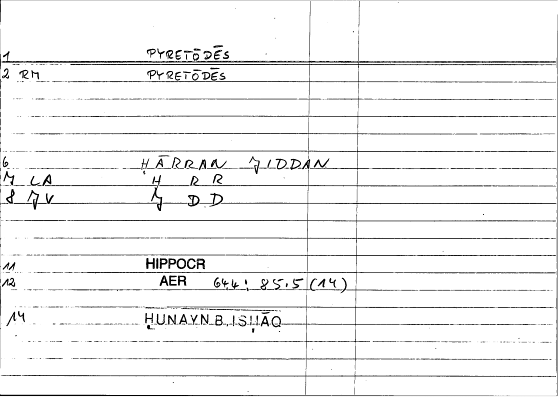 1 PYRETŌDĒS
2 RM PYRETŌDĒS
6 ḤĀRRAN ǦIDDAN
7 LA Ḥ R R
8 ǦV Ǧ D D
11 HIPPOCR
12 AER 644: 85.5 (14)
14 ḤUNAYN B. ISḤĀQ